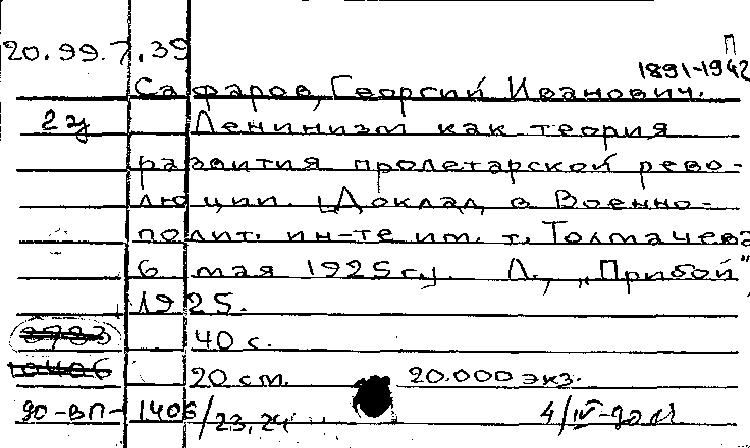 20.99.7.39
П
1891-1942
Сафаров, Георгий Иванович.
2 Ленинизм как теория
развития пролетарской рево-
люции. [Доклад в Военно-
полит. ин-те им. т. Толмачева
6 мая 1925 г.]. Л., „Прибой",
1925.
40 с.
10406
20 см. 20.000 экз.
90-ВП-1406/23,24 4/IV-90